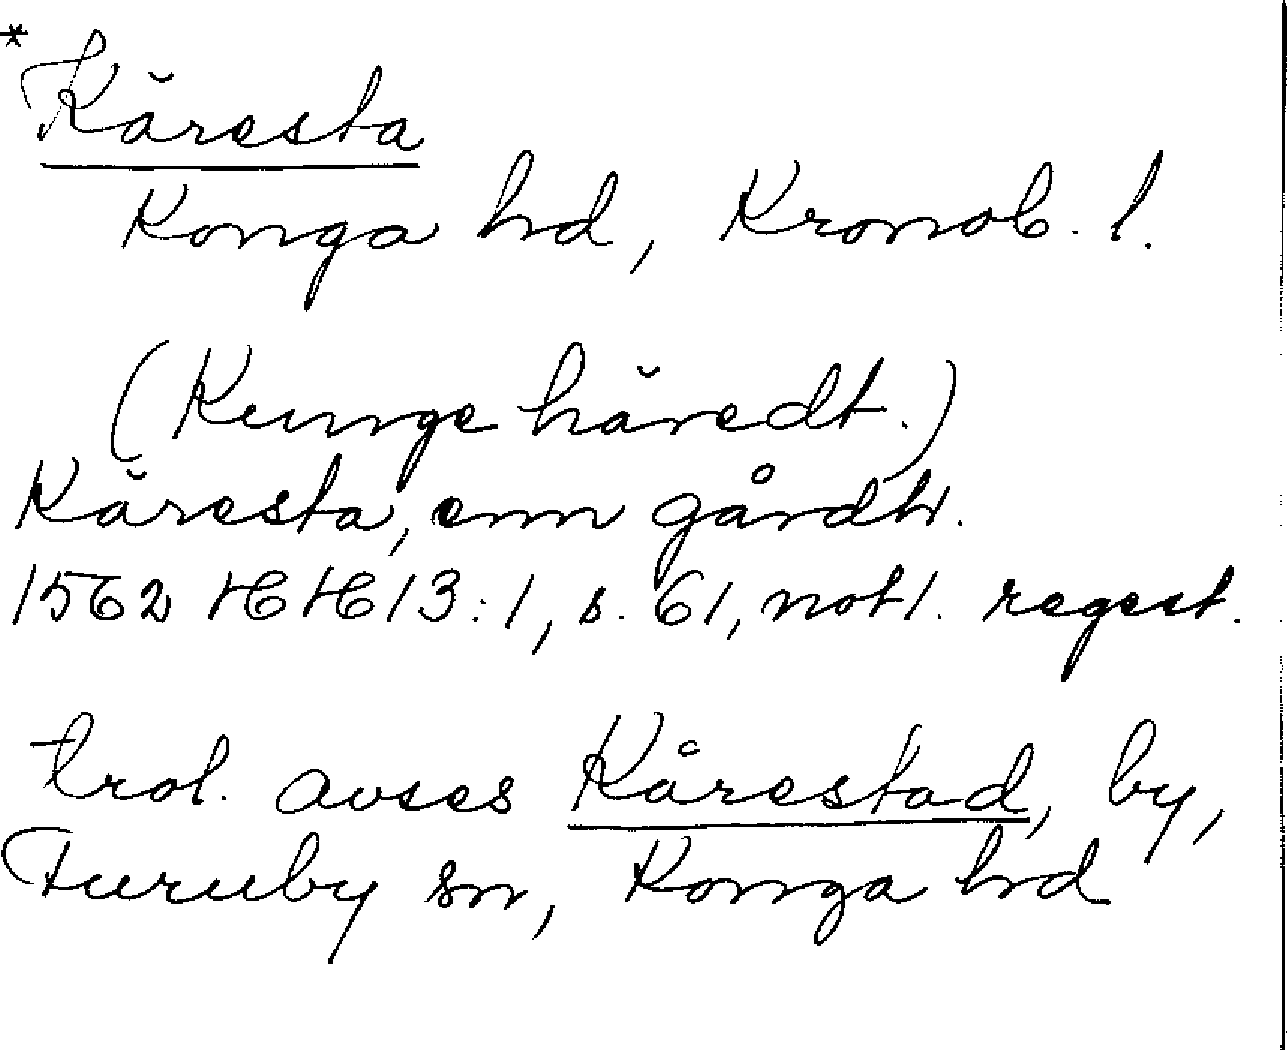 * Kăresta
Konga hd, Kronob. l.
(Kunge hăredt.)
Kăresta, enn gårdh.
1562 HH 13:1, s. 61, not 1. regest.
trol. avses Kårestad, by,
Furuby sn, Konga hd